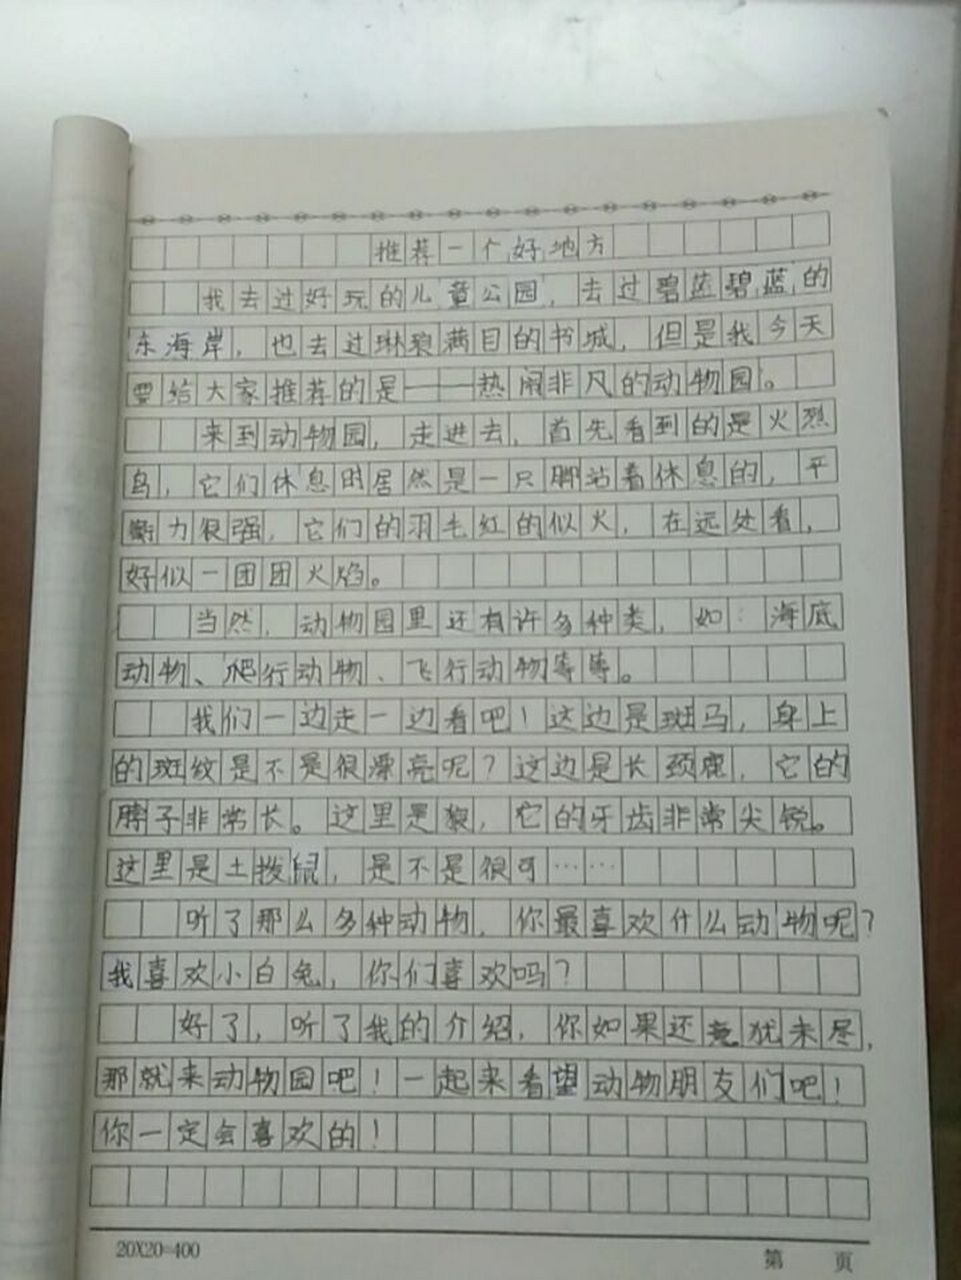 推荐一个好地方
我去过好玩的儿童公园，去过碧蓝碧蓝的
东海岸，也去过琳琅满目的书城，但是我今天
要给大家推荐的是——热闹非凡的动物园。
来到动物园，走进去，首先看到的是火烈
鸟，它们休息时居然是一只脚站着休息的，平
衡力很强，它们的羽毛红的似火，在远处看，
好似一团团火焰。
当然，动物园里还有许多种类，如：海底
动物、爬行动物、飞行动物等等。
我们一边走一边看吧！这边是斑马，身上
的斑纹是不是很漂亮呢？这边是长颈鹿，它的
脖子非常长。这里是狼，它的牙齿非常尖锐。
这里是土拨鼠，是不是很可……
听了那么多种动物，你最喜欢什么动物呢？
我喜欢小白兔，你们喜欢吗？
好了，听了我的介绍，你如果还意犹未尽，
那就来动物园吧！一起来看望动物朋友们吧！
你一定会喜欢的！
20X20=400
第 页